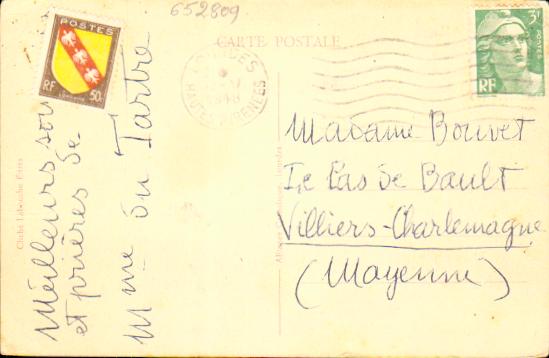 652809
CARTE POSTALE
POSTES
RF
LORRAINE
50c
LOURDES
1948
HAUTES-PYRENEES
3F
POSTES
RF
Meilleurs sou
et prières de
Mme du Tartre
Madame Bouvet
Le Pas de Bault
Villiers-Charlemagne
(Mayenne)
Cliché Labouche Frères